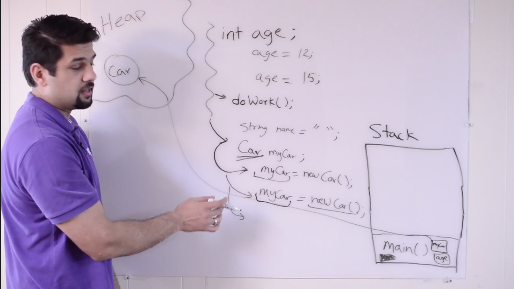 Heap
Car
int age;
age = 12;
age = 15;
doWork();
String name = " ";
Car myCar;
myCar = new Car();
myCar = new Car();
Stack
main()
age